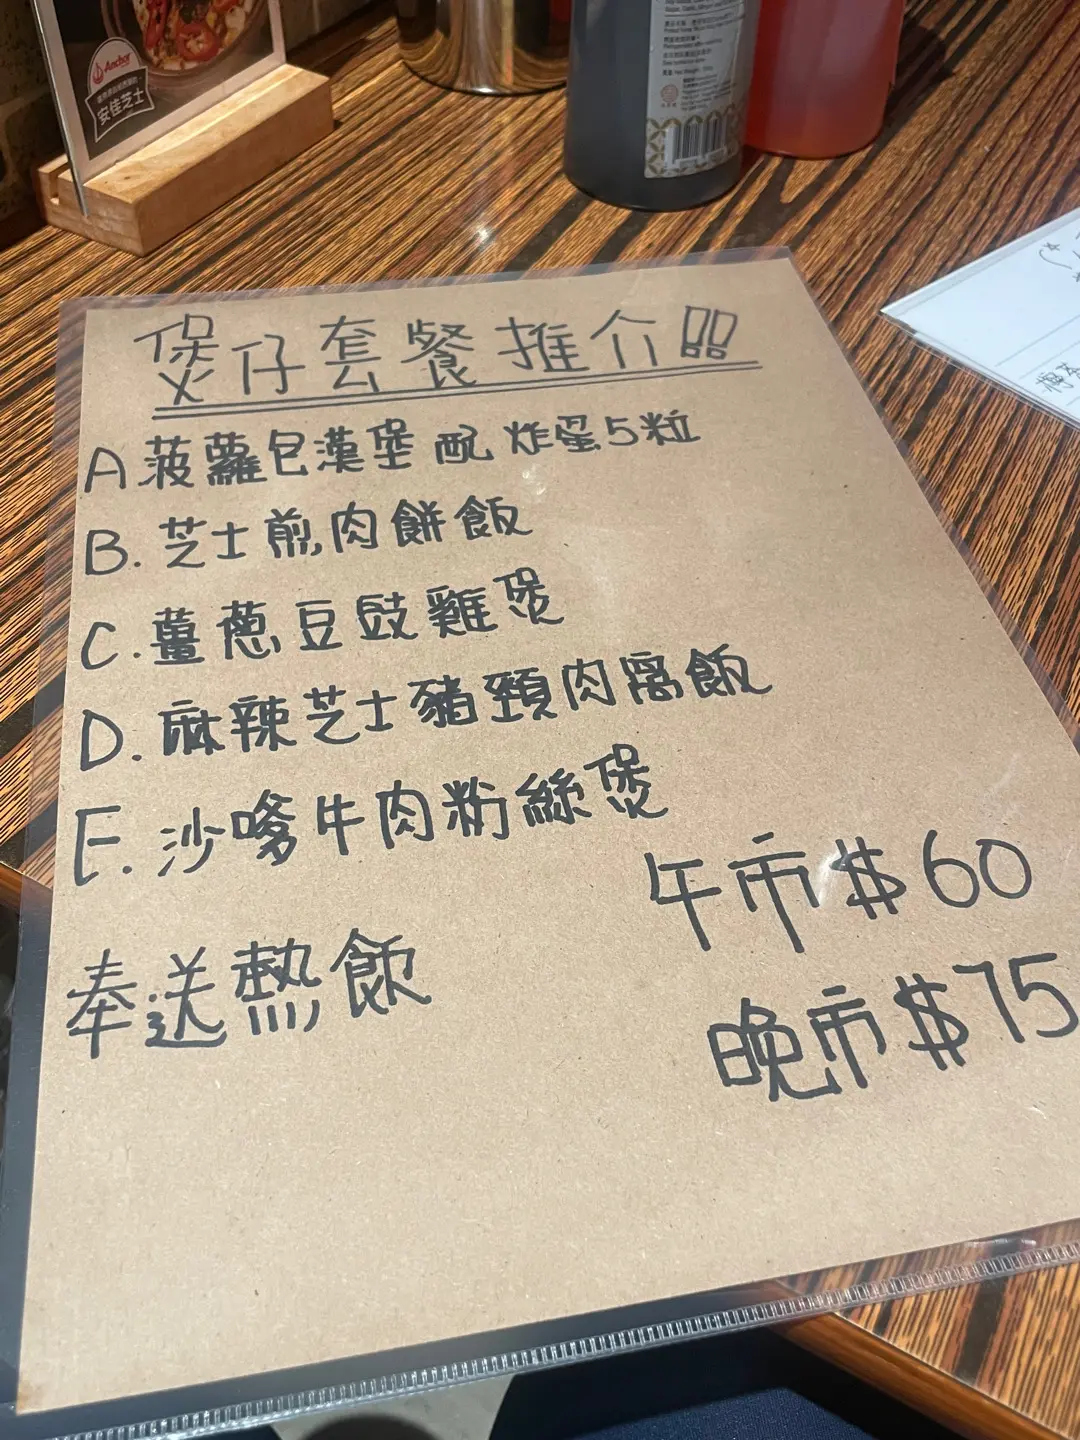 Anchor
安佳芝士
煲仔套餐推介!!
A 菠蘿包漢堡 配 炸蛋5粒
B. 芝士煎肉餅飯
C. 薑蔥豆豉雞煲
D. 麻辣芝士豬頸肉窩飯
E. 沙嗲牛肉粉絲煲
午市 $60
奉送熱飲
晚市 $75